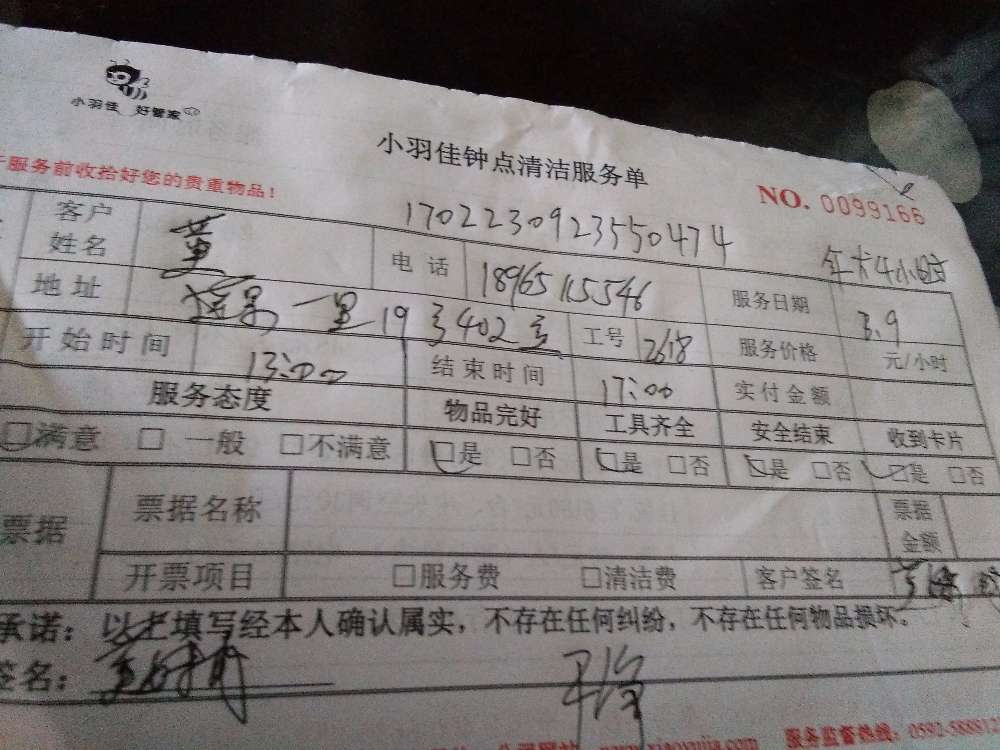 小羽佳 好管家
小羽佳钟点清洁服务单
服务前收拾好您的贵重物品!
NO. 0099166
17022309235504 74
客户姓名 黄 电话 18965115546 服务日期 3.9
地址 一里19号402室 工号 2618 服务价格 元/小时
开始时间 13:00 结束时间 17:00 实付金额
服务态度 物品完好 工具齐全 安全结束 收到卡片
□满意 □一般 □不满意 □是 □否 □是 □否 □是 □否 □是 □否
票据 票据名称 票据金额
开票项目 □服务费 □清洁费 客户签名
承诺：以上填写经本人确认属实，不存在任何纠纷，不存在任何物品损坏。
签名：
服务监督热线：0592-588812